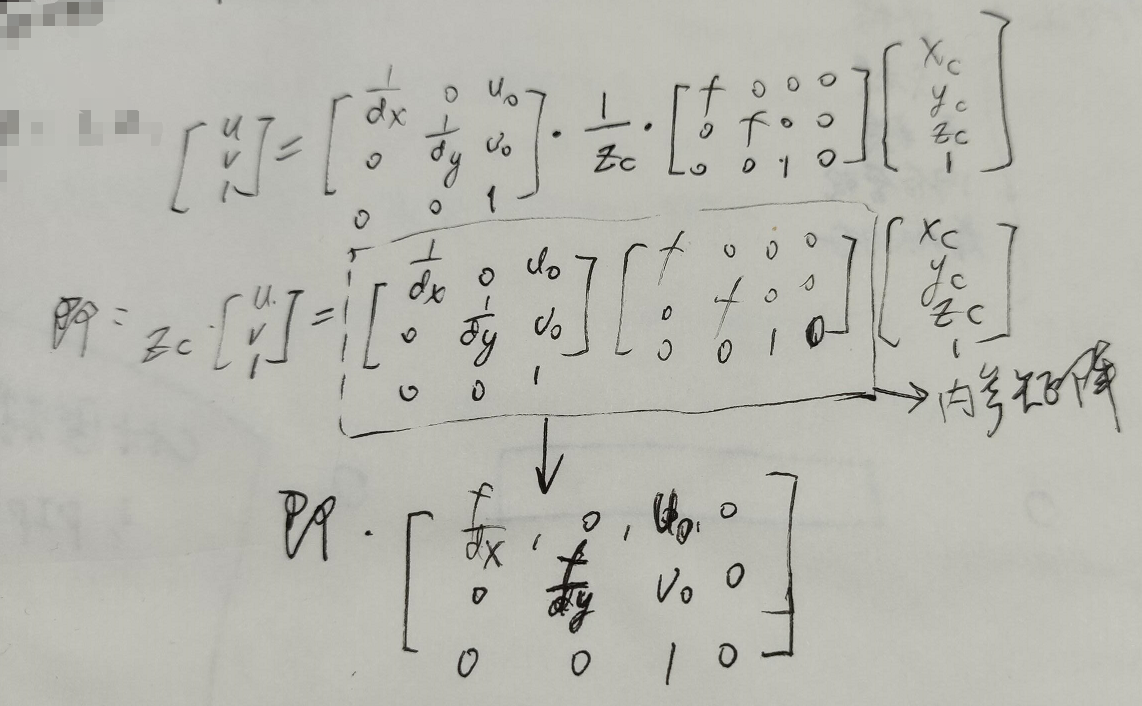 [u v 1] = [1/dx 0 u₀; 0 1/dy v₀; 0 0 1] · 1/Zc · [f 0 0 0; 0 f 0 0; 0 0 1 0] [Xc yc Zc 1]
即: Zc · [u v 1] = [1/dx 0 u₀; 0 1/dy v₀; 0 0 1] [f 0 0 0; 0 f 0 0; 0 0 1 0] [Xc yc Zc 1]
→ 内参矩阵
即 · [f/dx, 0, u₀, 0; 0 f/dy v₀ 0; 0 0 1 0]